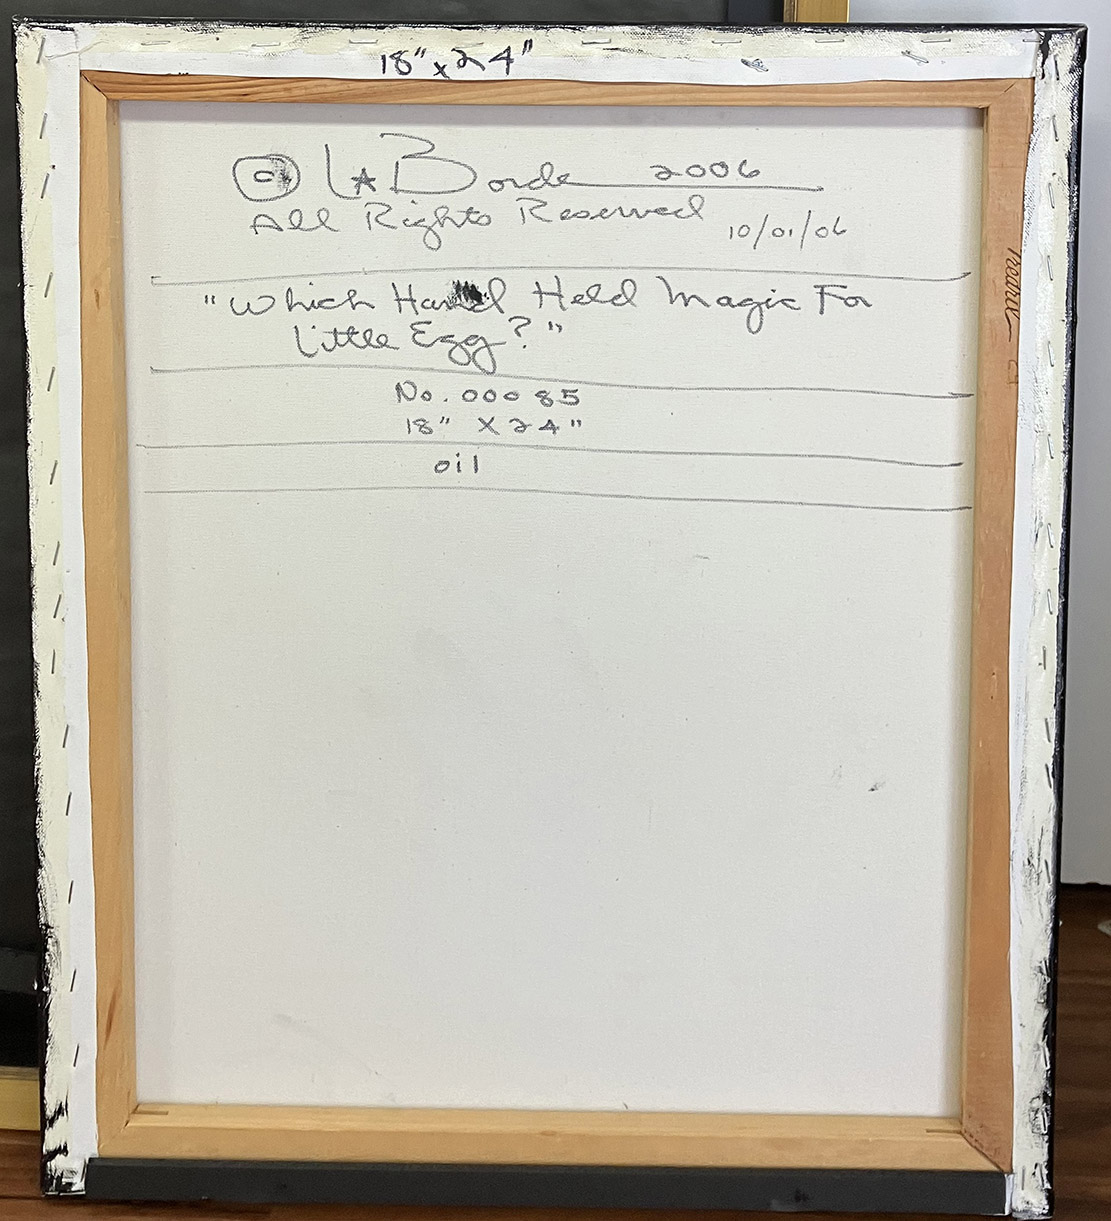 18" x 24"
© LaBorde 2006
All Rights Reserved
10/01/06
"Which Hand Held Magic For
Little Egg?"
No. 00085
18" X 24"
oil